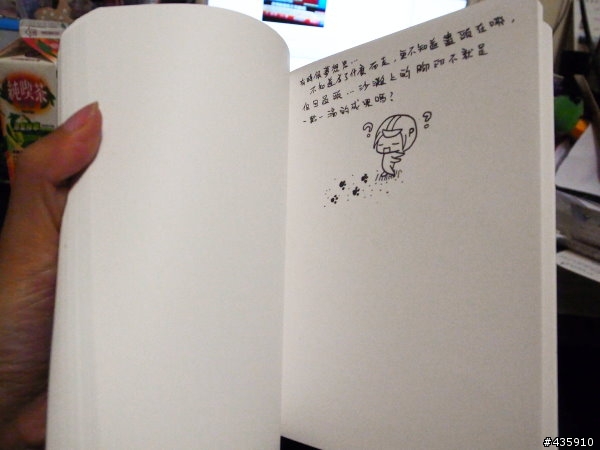 純喫茶
有時候夢想是...
不知道為了什麼而走,更不知道盡頭在哪,
沙灘上的腳印不就是
一點一滴的成果嗎?
? ?
#435910